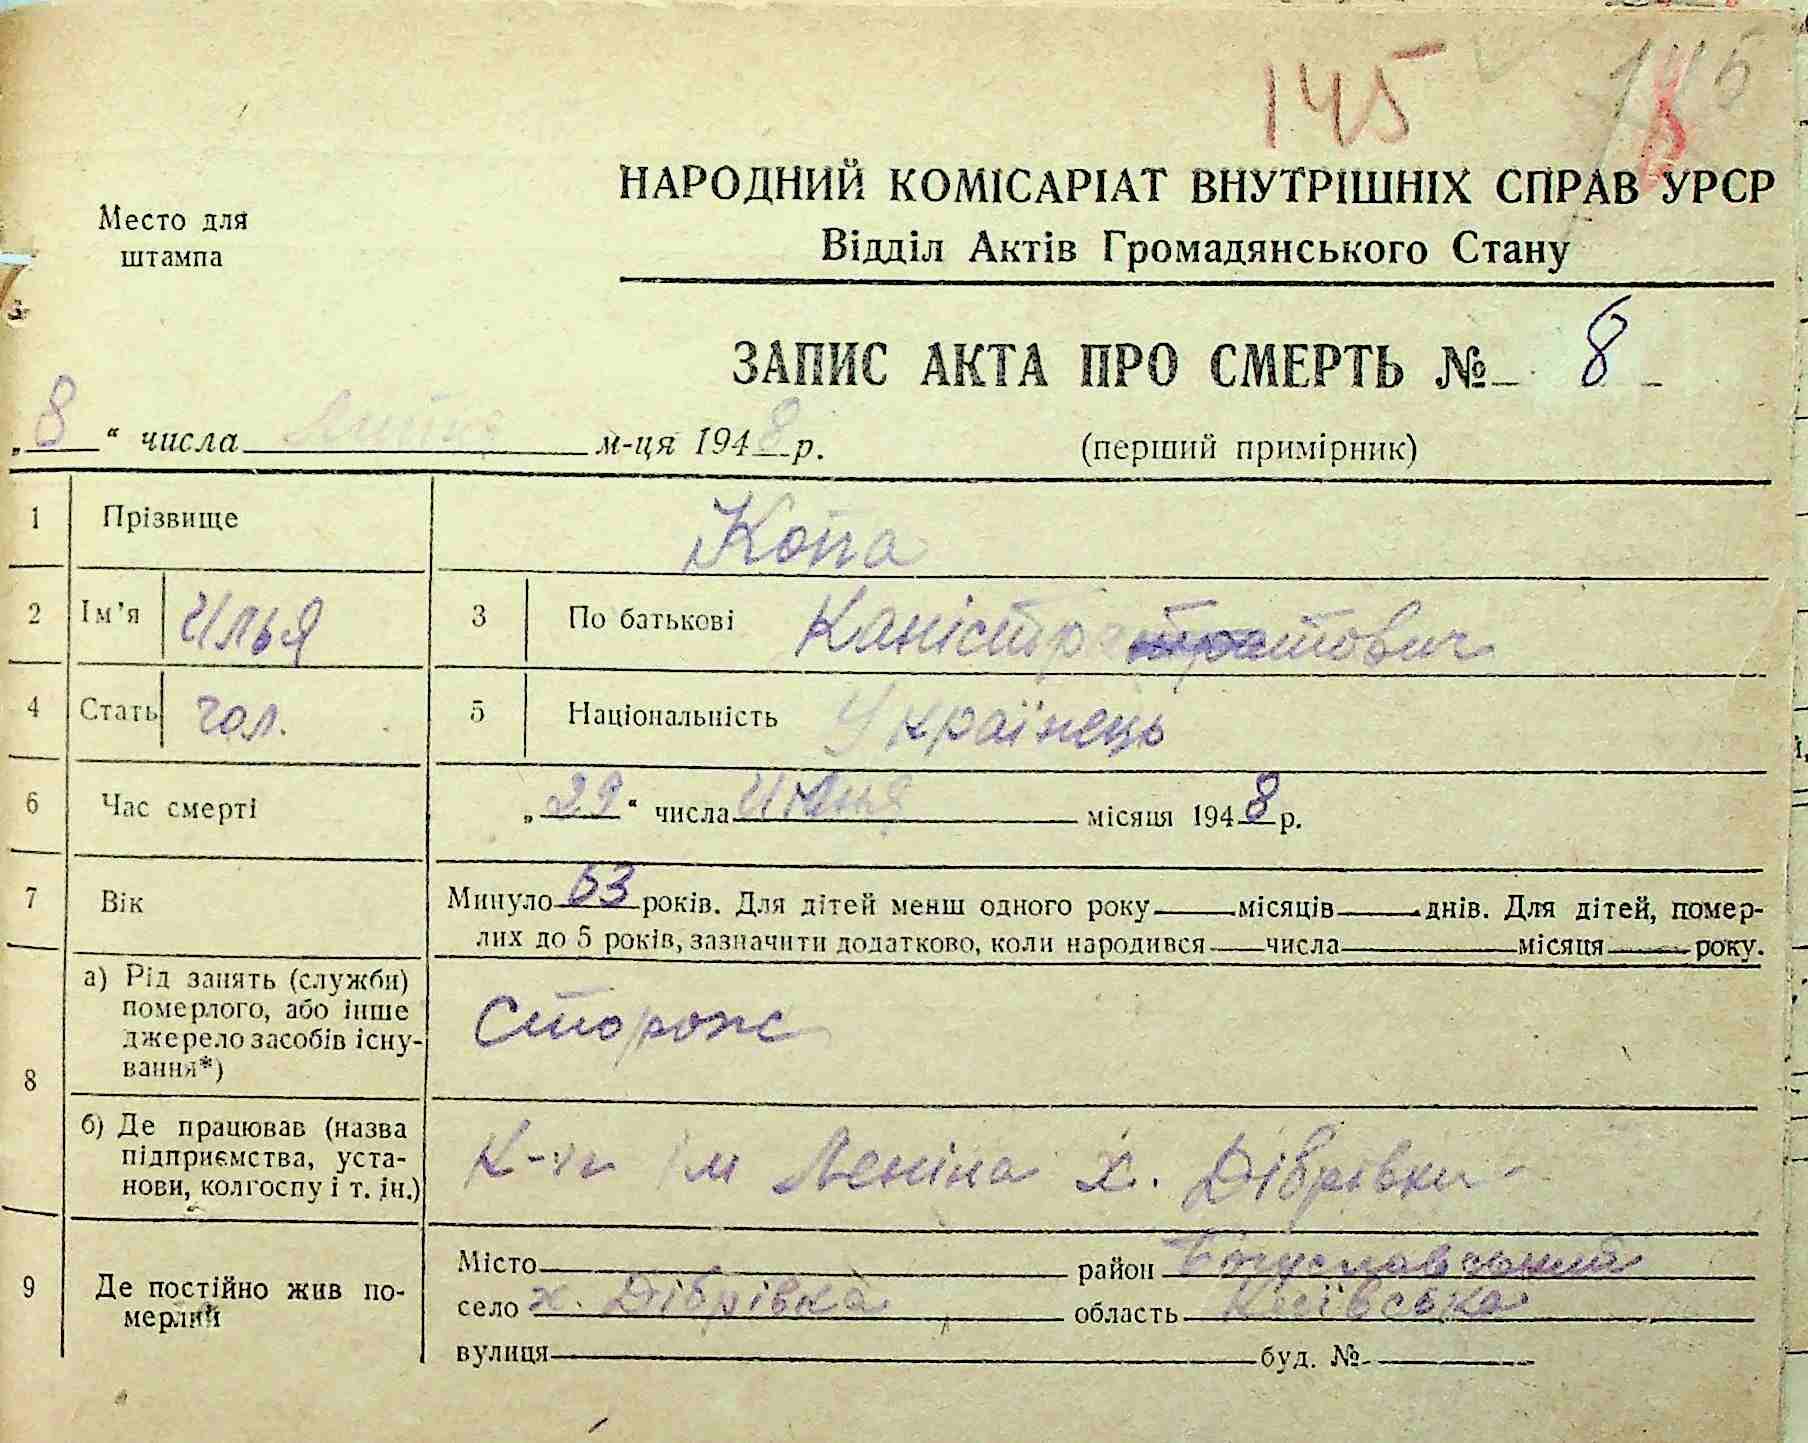 145
НАРОДНИЙ КОМІСАРІАТ ВНУТРІШНІХ СПРАВ УРСР
Место для
штампа
Відділ Актів Громадянського Стану
ЗАПИС АКТА ПРО СМЕРТЬ № 8
„8“ числа липня м-ця 1948 р.
(перший примірник)
1 Прізвище Копа
2 Ім’я Илья 3 По батькові
4 Стать чол. 5 Національність Українець
6 Час смерті „29“ числа Июня місяця 1948 р.
7 Вік Минуло 53 років. Для дітей менш одного року місяців днів. Для дітей, помер-
лих до 5 років, зазначити додатково, коли народився числа місяця року.
8 а) Рід занять (служби)
померлого, або інше
джерело засобів існу-
вання*)
Сторож
б) Де працював (назва
підприємства, уста-
нови, колгоспу і т. ін.)
К-п ім Леніна х. Дібрівки
9 Де постійно жив по-
мерлий
Місто район Богуславський
село х. Дібрівка область Київська
вулиця буд. №